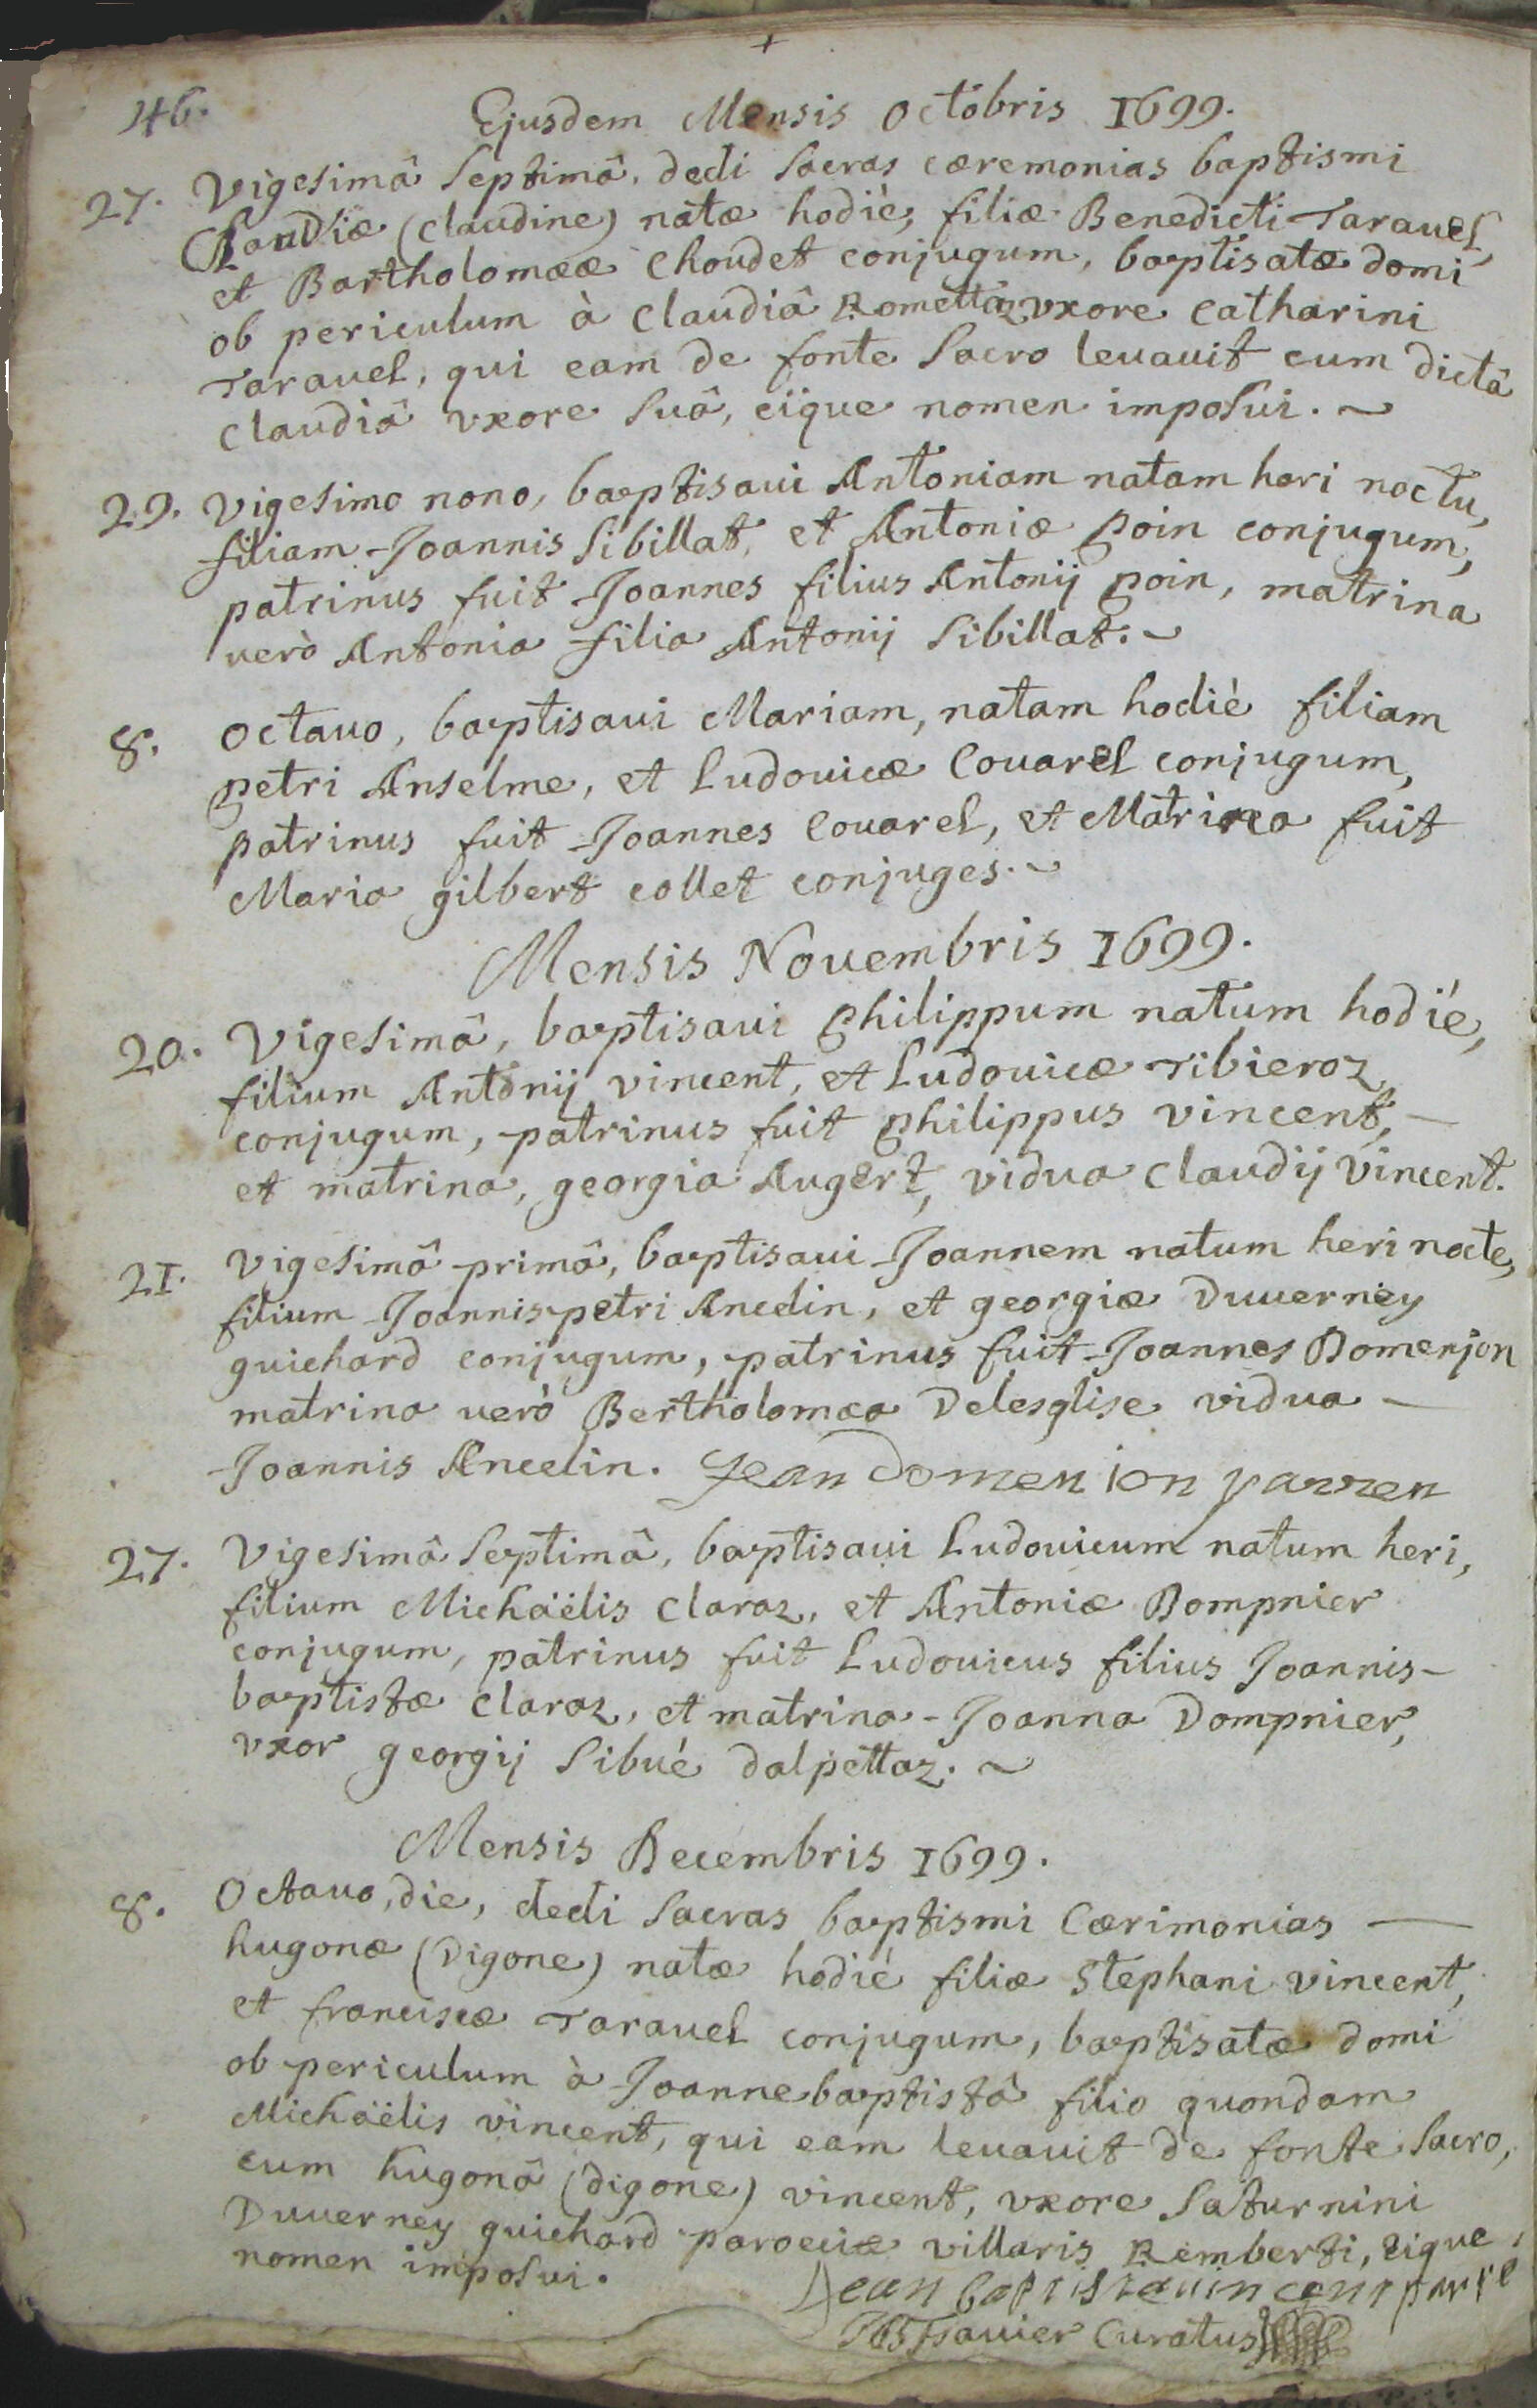 46.
Ejusdem Mensis Octobris 1699.
27. Vigesimâ Septimâ, dedi Sacras cæremonias baptismi
Claudiæ (claudine) natæ hodiè, filiæ Benedicti Taravel,
et Bartholomææ Choudet conjugum, baptisatæ domi
ob periculum à Claudiâ Romettaz vxore Catharini
Taravel, qui eam de fonte Sacro levavit cum dictâ
Claudiâ vxore Suâ, eïque nomen imposui.
29. Vigesimo nono, baptisavi Antoniam natam heri noctu,
filiam Joannis Sibillat, et Antoniæ Poin conjugum,
patrinus fuit Joannes filius Antonij Poin, matrina
verò Antonia filia Antonij Sibillat.
8. Octavo, baptisavi Mariam, natam hodiè filiam
Petri Anselme, et Ludovicæ Covarel conjugum,
patrinus fuit Joannes Covarel, et Matrina fuit
Maria gilbert collet conjuges.
Mensis Novembris 1699.
20. Vigesimâ, baptisavi Philippum natum hodié,
filium Antonij vincent, et Ludovicæ Tibieroz
conjugum, patrinus fuit Philippus vincent,
et matrina, georgia Augert, vidua Claudij Vincent.
21. Vigesimâ primâ, baptisavi Joannem natum heri nocte,
filium Joannis petri Ancelin, et georgiæ Duverney
guichard conjugum, patrinus fuit Joannes Domenjon
matrina verò Bertholomæa Delesglise vidua
Joannis Ancelin. Jean domen ion parren
27. Vigesimâ Septimâ, baptisavi Ludovicum natum heri,
filium Michaëlis Claraz, et Antoniæ Dompnier
conjugum, patrinus fuit Ludovicus filius Joannis-
baptistæ Claraz, et matrina Joanna Dompnier,
vxor georgij Sibué dalpettaz.
Mensis Decembris 1699.
8. Octavo, die, dedi Sacras baptismi Cærimonias
hugonæ (Digone) natæ hodié filiæ Stephani vincent,
et franciscæ Taravel conjugum, baptisatæ domi
ob periculum à Joannebaptistâ filio quondam
Michaëlis vincent, qui eam levavit de fonte Sacro,
cum hugonâ (digone) vincent, vxore Saturnini
Duverney guichard parœciæ villaris Remberti, Eique
nomen imposui.
Jean baptiste vincent parre
Curatus